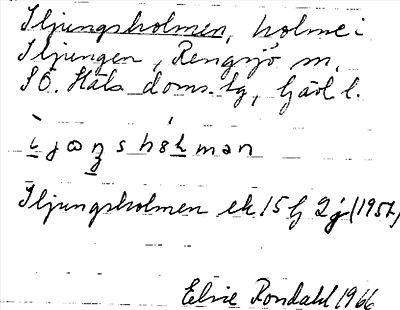 Iljungsholmen, holme i
Iljungen, Rengsjö sn,
SÖ. Häls doms. tg, Gävl l.
Iljungsholmen ek 15 G 2 j (1957)
Elsie Rondahl 1966